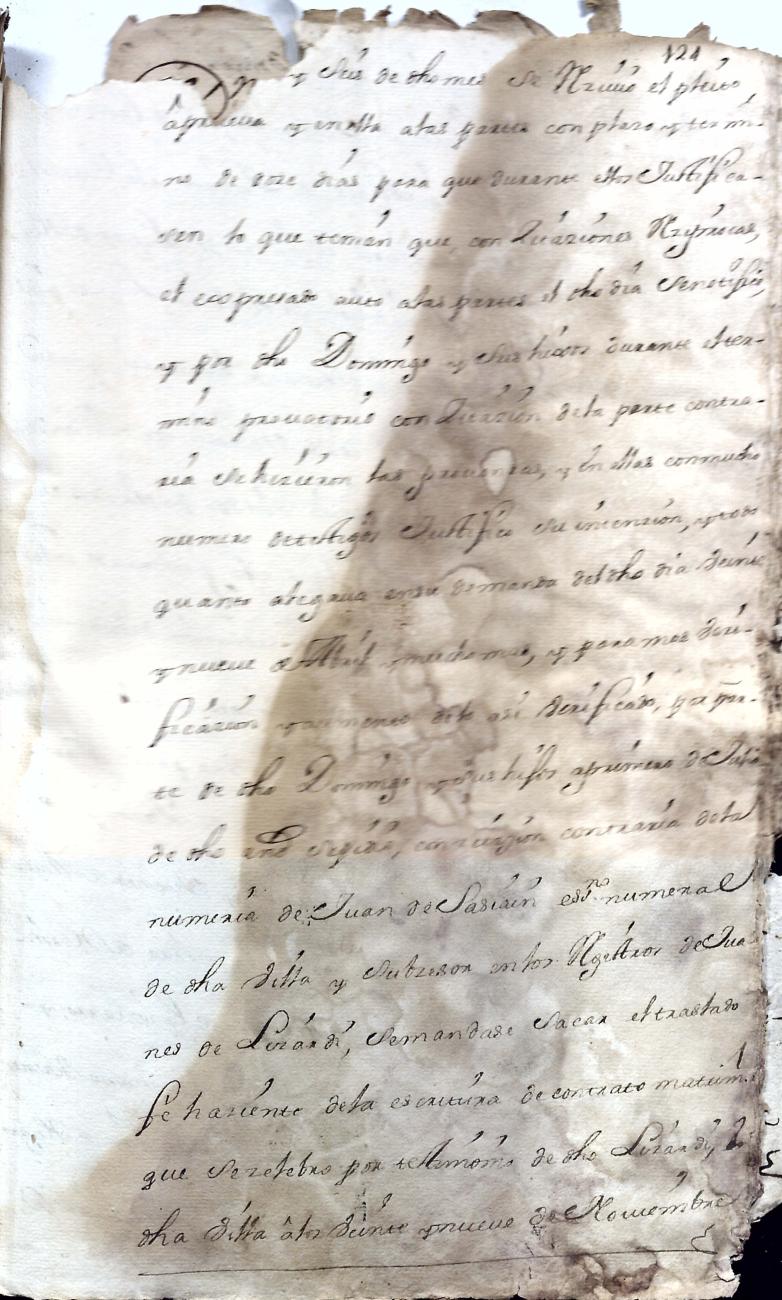 124
y seis de dho mes se Rzivio el pleito
âprueva y en ella alas partes con plazo y termi-
no de doze dias para que durante ellos Justifica-
sen lo que tenian que, con Zitaziones Rezyprocas,
el expresado auto alas partes el dho dia se notifico,
y por dho Domingo y sus hixos durante el ter-
mino provatorio con Zitazion dela parte contra-
ria se hizieron las provanzas, y en ellas con mucho
numero de testigos Justifico su intenzion, y todo
quanto alegava en su demanda del dho dia veinte
y nueve de Abril y mucho mas, y para mas veri-
ficazion y aumento delo asi verificado, por par-
te de dho Domingo y sus hijos a primero de Julio
de dho año se pidio, con zitazion contraria dela
numeria de Juan de Sasiain essno numeral
de dha villa y subzesor en los Rgistros de Jua
nes de Lizardi, se mandase sacar el traslado
fe haziente dela escritura de contrato matrim
que se zelebro por testimonio de dho Lizardi,
dha villa âlos veinte y nueve de Noviembre